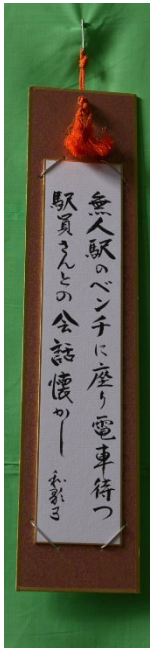 無人駅のベンチに座り電車待つ
駅員さんとの会話懐かし